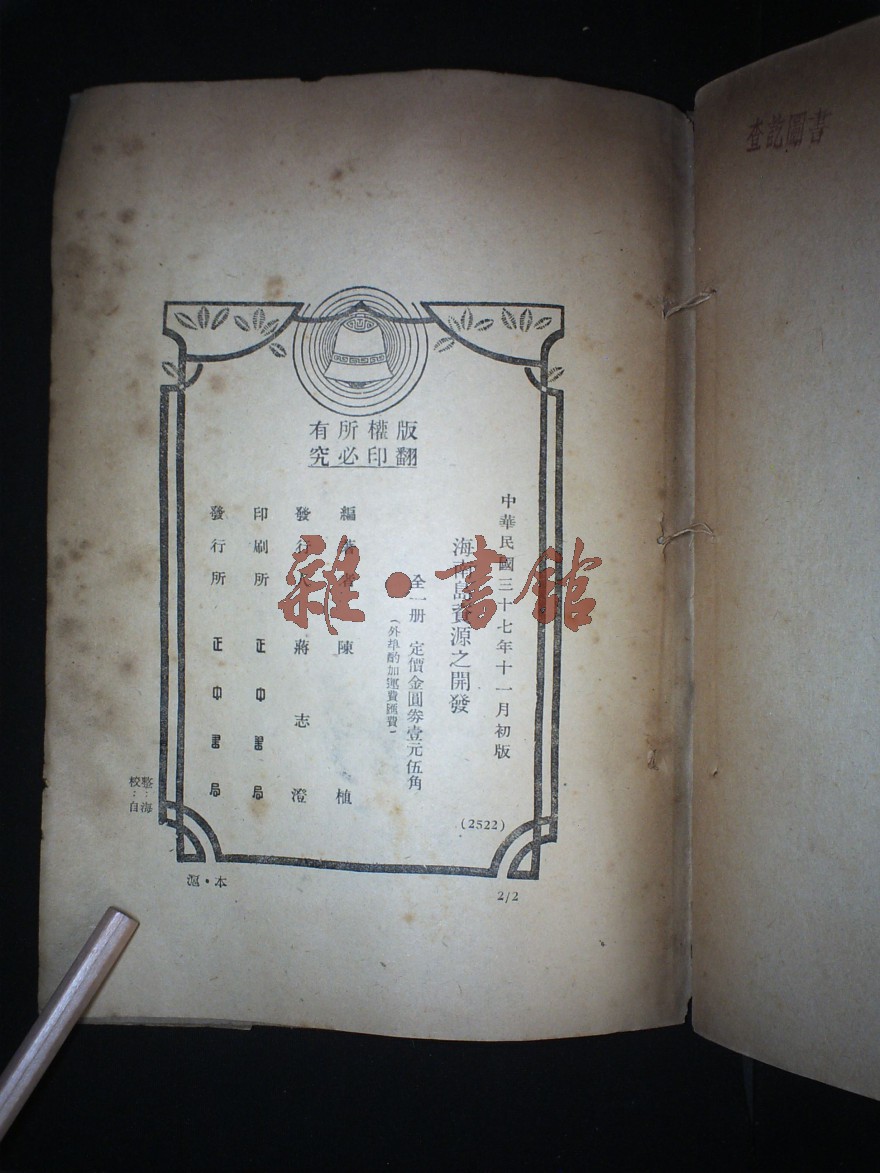 版權所有
翻印必究
中華民國三十七年十一月初版
海南島資源之開發
全一册 定價金圓券壹元伍角
(外埠酌加運費匯費)
編著者 陳植
發行人 蔣志澄
印刷所 正中書局
發行所 正中書局
(2522)
整：海
校：自
滬·本
2/2
查訖圖書
雜·書館